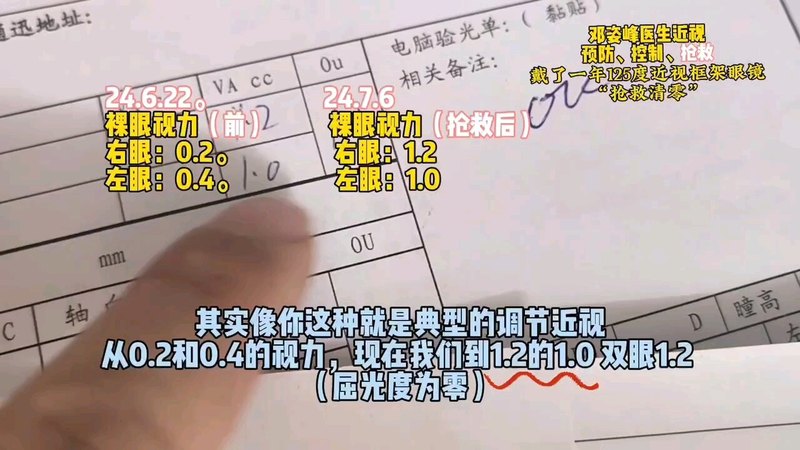 通迅地址:
电脑验光单:（黏贴）
相关备注:
VA cc
Ou
邓姿峰医生近视
预防、控制、抢救
戴了一年125度近视框架眼镜
“抢救清零”
24.6.22。
裸眼视力（前）
右眼：0.2。
左眼：0.4。
24.7.6
裸眼视力（抢救后）
右眼：1.2
左眼：1.0
1.0
mm
OU
C
轴
D
瞳高
其实像你这种就是典型的调节近视
从0.2和0.4的视力，现在我们到1.2的1.0 双眼1.2
（屈光度为零）